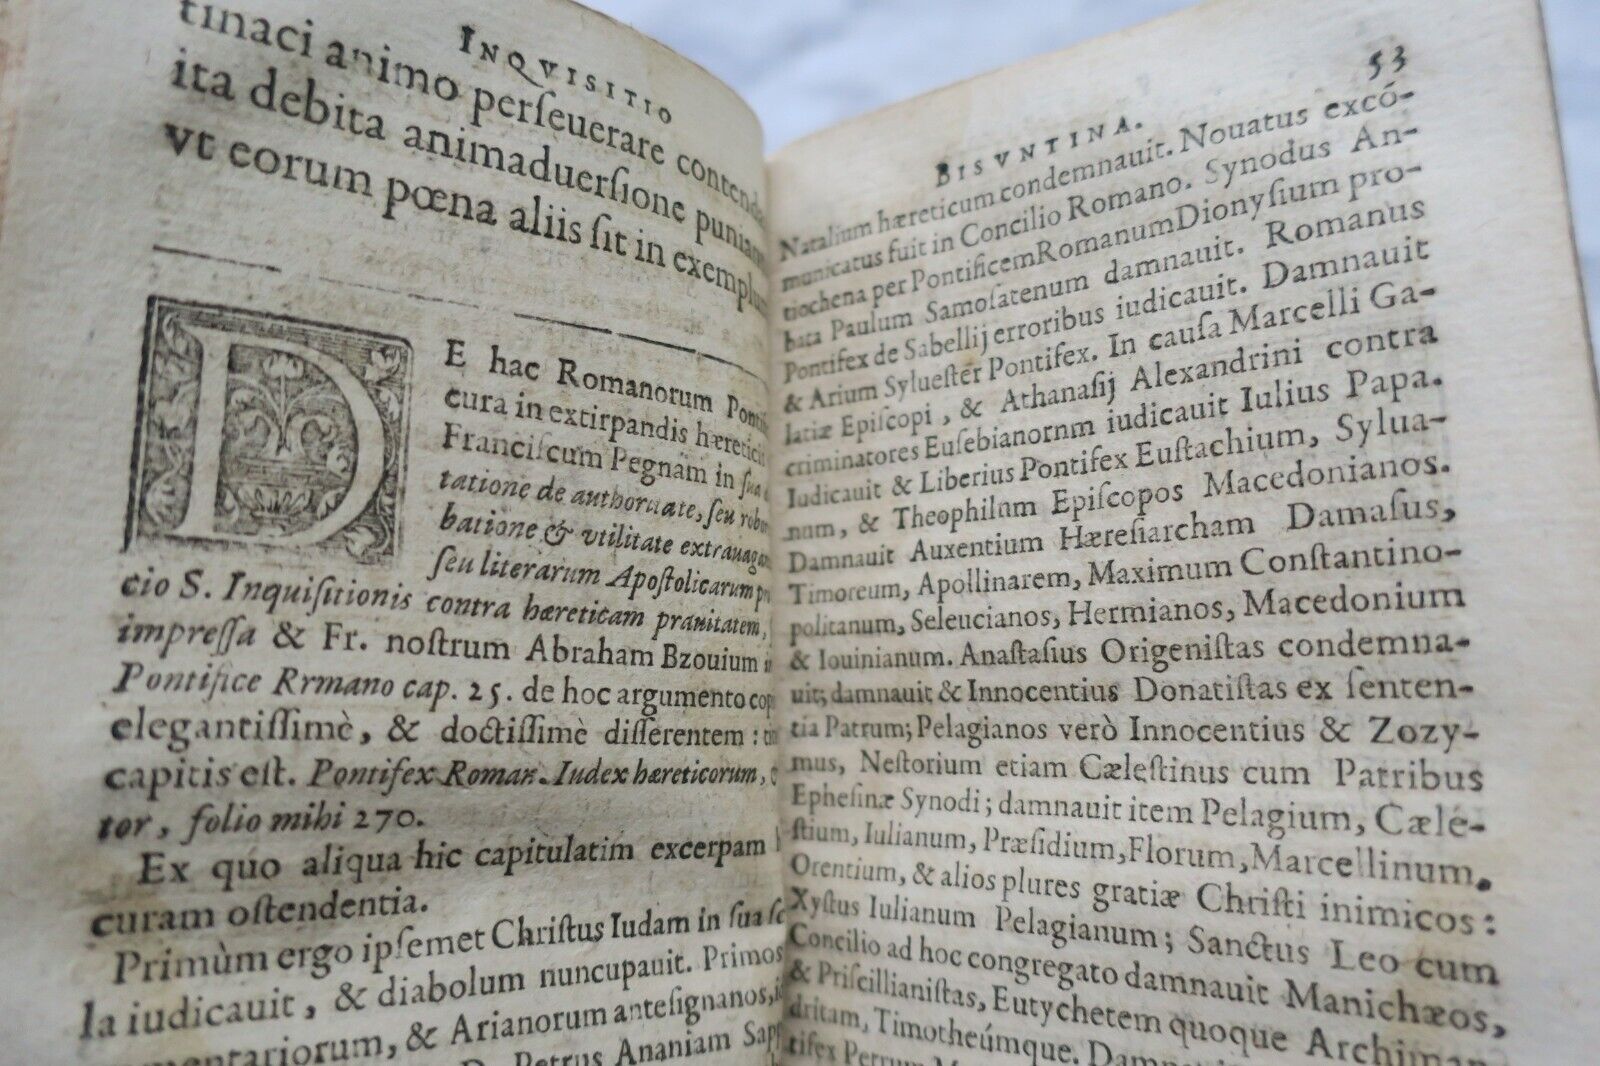 INQVISITIO
tinaci animo perſeuerare contenda
ita debita animaduerſione punian
vt eorum pœna aliis ſit in exemplum
DE hac Romanorum Pontifi
cura in extirpandis hæretici
Franciſcum Pegnam in ſua
tatione de authoritate, ſeu robo
batione & vtilitate extrauagan
ſeu literarum Apoſtolicarum pr
cio S. Inquiſitionis contra hæreticam prauitatem,
impreſſa & Fr. noſtrum Abraham Bzouium
Pontifice Rrmano cap. 25. de hoc argumento cop
elegantiſſimè, & doctiſſimè diſſerentem:
capitis eſt. Pontifex Roman. Iudex hæreticorum,
tor, folio mihi 270.
Ex quo aliqua hic capitulatim excerpam
curam oſtendentia.
Primùm ergo ipſemet Chriſtus Iudam in ſua
la iudicauit, & diabolum nuncupauit. Primos
mentariorum, & Arianorum anteſignanos,
D. Petrus Ananiam Sap
BISVNTINA. 53
Natalium hæreticum condemnauit. Nouatus excó-
municatus fuit in Concilio Romano. Synodus An-
tiochena per Pontificem Romanum Dionyſium pro-
bata Paulum Samoſatenum damnauit. Romanus
Pontifex de Sabellij erroribus iudicauit. Damnauit
& Arium Sylueſter Pontifex. In cauſa Marcelli Ga-
latiæ Epiſcopi, & Athanaſij Alexandrini contra
criminatores Euſebianornm iudicauit Iulius Papa.
Iudicauit & Liberius Pontifex Euſtachium, Sylua-
num, & Theophilum Epiſcopos Macedonianos.
Damnauit Auxentium Hæreſiarcham Damaſus,
Timoreum, Apollinarem, Maximum Conſtantino-
politanum, Seleucianos, Hermianos, Macedonium
& Iouinianum. Anaſtaſius Origeniſtas condemna-
uit; damnauit & Innocentius Donatiſtas ex ſenten-
tia Patrum; Pelagianos verò Innocentius & Zozy-
mus, Neſtorium etiam Cæleſtinus cum Patribus
Epheſinæ Synodi; damnauit item Pelagium, Cæle-
ſtium, Iulianum, Præſidium, Florum, Marcellinum,
Orentium, & alios plures gratiæ Chriſti inimicos:
Xyſtus Iulianum Pelagianum; Sanctus Leo cum
Concilio ad hoc congregato damnauit Manichæos,
& Priſcillianiſtas, Eutychetem quoque Archiman-
dritam, Timotheúmque. Damnauit
tifex Petrum